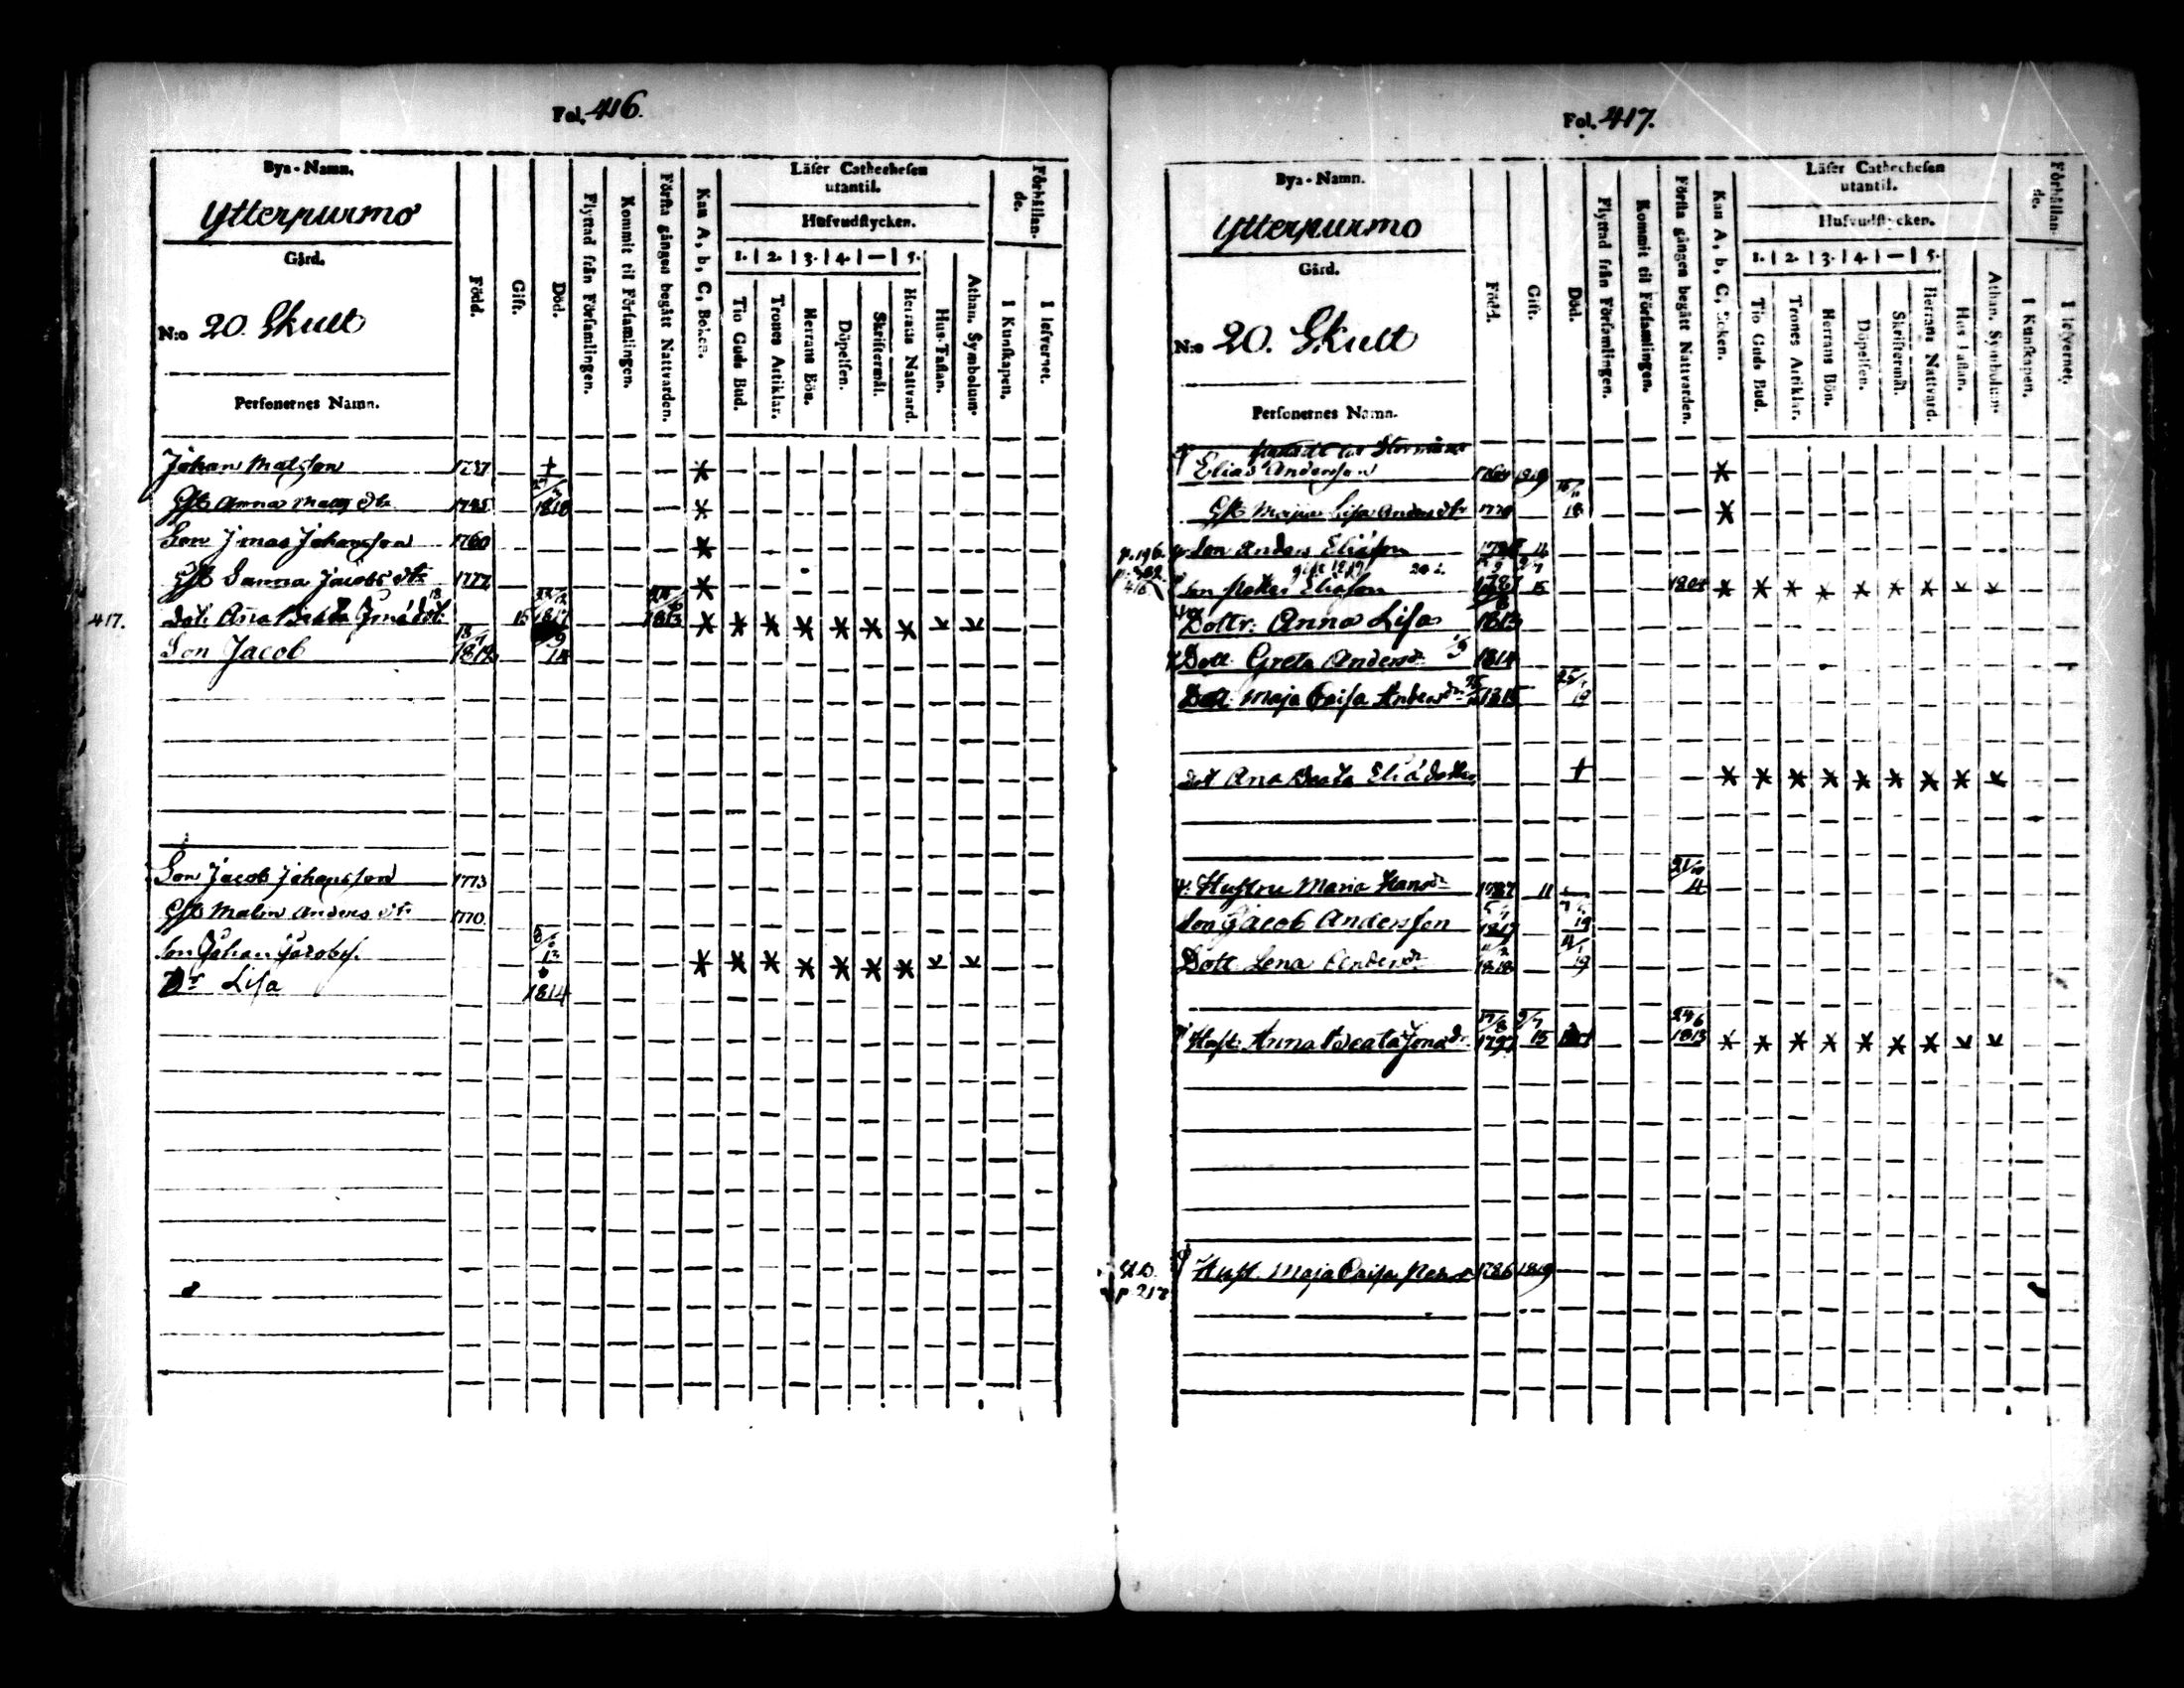 Fol. 416.
Bya-Namn.
Ytterpurmo
Gård.
N:o 20. Skutt
Personernes Namn.
Född.
Gift.
Död.
Flyttad från Församlingen.
Kommit til Församlingen.
Första gången begått Nattvarden.
Kan A, b, C, Boken.
Läser Cathechesen
utantil.
Hufvudstycken.
1. 2. 3. 4. — 5.
Tio Guds Bud.
Trones Artiklar.
Herrans Bön.
Döpelsen.
Skriftermål.
Herrans Nattvard.
Hus-Taflan.
Athan. Symbolum.
Förhållan-
de.
I Kunskapen.
I lefvernet.
Johan Matsson 1737 +
Gft Anna Matts dtr 1745 1810
Son Jonas Johansson 1760
Gft Sanna Jacobs dtr 1777
417. dott Ana Beata 15 1817 1813
Son Jacob 1812 14
Son Jacob Johansson 1773
Gft Malin Anders dtr 1770
Son Johan Jacobss. 13
Dr Lisa 1814
Fol. 417.
Bya-Namn.
Ytterpurmo
Gård.
N:o 20. Skutt
Personernes Namn.
Född.
Gift.
Död.
Flyttad från Församlingen.
Kommit til Församlingen.
Första gången begått Nattvarden.
Kan A, b, C, Boken.
Läser Cathechesen
utantil.
Hufvudstycken.
1. 2. 3. 4. — 5.
Tio Guds Bud.
Trones Artiklar.
Herrans Bön.
Döpelsen.
Skriftermål.
Herrans Nattvard.
Hus-Taflan.
Athan. Symbolum.
Förhållan-
de.
I Kunskapen.
I lefvernet.
Elias Andersson 1819
Gft Maja Lisa Anders dtr 1770 18
p. 196. Son Anders Eliasson
gift 1819
Son Petter Eliasson 1787 15 1804
Dottr. Anna Lisa 1813
Dott. Greta Andersdr 1814
Dott. Maja Caisa Andersdr 1815 19
dott Ana Beata Eliædotter +
Hustru Maria Hansdr 1787 11 4
Son Jacob Andersson 1817 19
Dott Lena Andersdr 1818 19
Hust. Anna Beata Jonædr 1797 15 24/6 1813
Hust. Maja Caisa 1786 1819
p 217